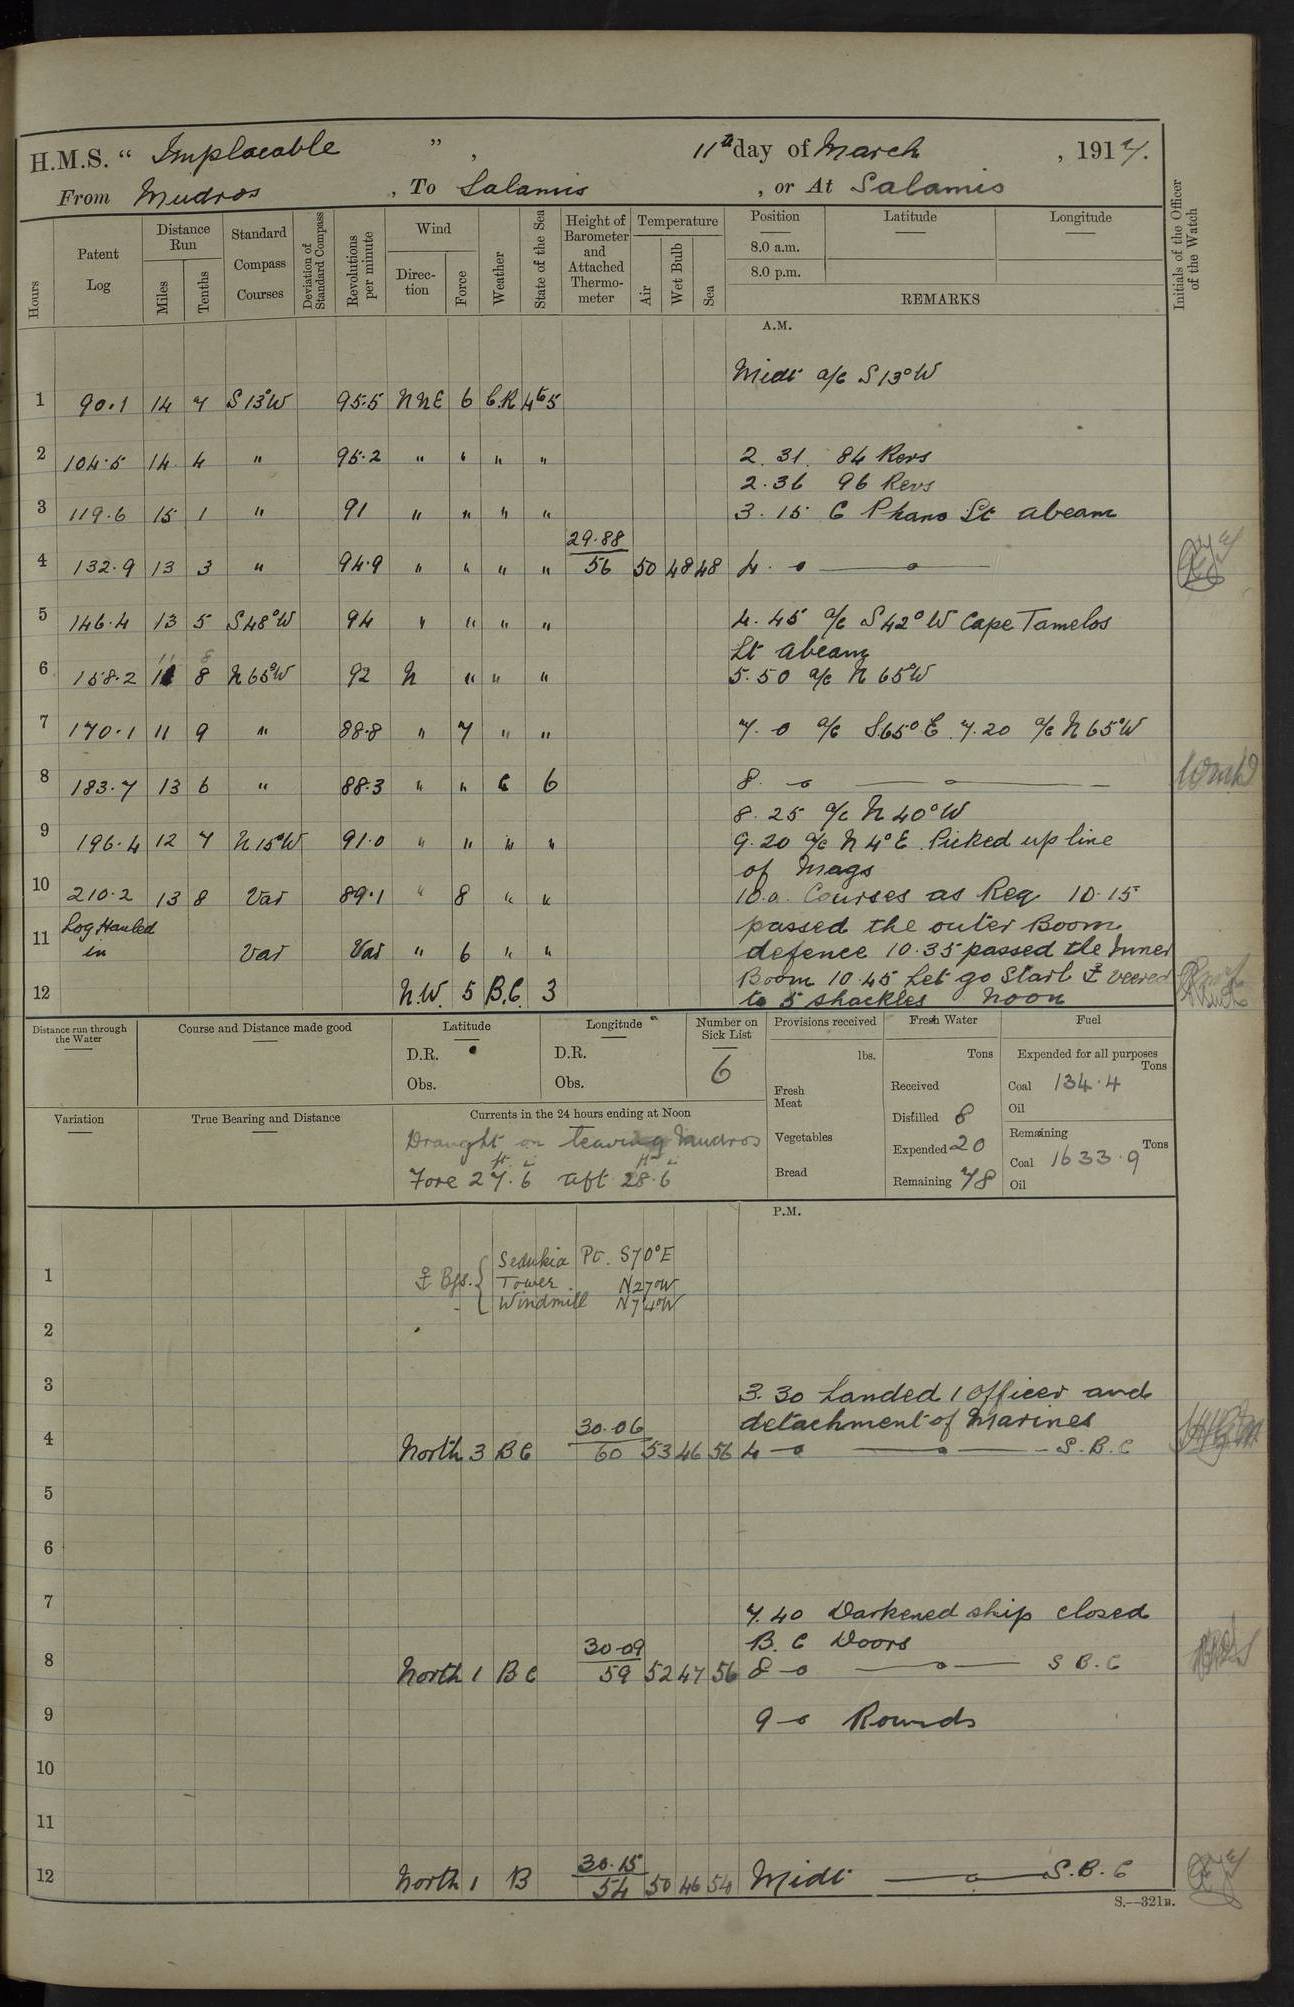 H.M.S. “ Implacable ” , 11th day of March , 1917.
From Mudros , To Salamis , or At Salamis
Hours Patent Log Distance Run Miles Tenths Standard Compass Courses Deviation of Standard Compass Revolutions per minute Wind Direction Force Weather State of the Sea Height of Barometer and Attached Thermometer Temperature Air Wet Bulb Sea Position 8.0 a.m. 8.0 p.m. Latitude Longitude REMARKS Initials of the Officer of the Watch
A.M.
Midt a/c S 13° W
1 90.1 14 7 S 13° W 95.5 NNE 6 C.R 4 to 5
2 104.5 14 4 " 95.2 " " " " 2.31. 84 Revs
2.36 96 Revs
3 119.6 15 1 " 91 " " " " 3.15 C Phano Lt abeam
4 132.9 13 3 " 94.9 " " " " 29.88 56 50 48 48 4.0
5 146.4 13 5 S 48° W 94 " " " " 4.45 a/c S 42° W Cape Tamelos
Lt abeam
6 158.2 11 8 N 65° W 92 N " " " 5.50 a/c N 65° W
7 170.1 11 9 " 88.8 " 7 " " 7.0 a/c S 65° E 7.20 a/c N 65° W
8 183.7 13 6 " 88.3 " " C 6 8.0
8.25 a/c N 40° W
9 196.4 12 7 N 15° W 91.0 " " " " 9.20 a/c N 4° E Picked up line
of Mags
10 210.2 13 8 Var 89.1 " 8 " " 10.0. Courses as Req 10.15
Log Hauled passed the outer Boom
11 in Var Var " 6 " " defence 10.35 passed the Inner
Boom 10.45 Let go Starb ⚓ veered
12 N.W. 5 B.C 3 to 5 shackles Noon
Distance run through the Water Course and Distance made good Latitude Longitude Number on Sick List Provisions received Fresh Water Fuel
D.R. D.R. 6 lbs. Tons Expended for all purposes Tons
Obs. Obs. Fresh Meat Received Coal 134.4
Distilled 8 Oil
Variation True Bearing and Distance Currents in the 24 hours ending at Noon Vegetables Expended 20 Remaining Tons
Draught on leaving Mudros Coal 1633.9
Fore 27 ft. 6 aft 28 ft 6 Bread Remaining 78 Oil
P.M.
⚓ Bgs. { Sedukia Pt. S70°E
1 Tower N27°W
Windmill N74°W
2
3 3.30 Landed 1 Officer and
detachment of Marines
4 North 3 BC 30.06 60 53 46 56 4.0 S.B.C
5
6
7 7.40 Darkened ship closed
B.C Doors
8 North 1 BC 30.09 59 52 47 56 8.0 S B.C
9 9.0 Rounds
10
11
12 North 1 B 30.15 54 50 46 54 Midt S.B.C
S.—321B.